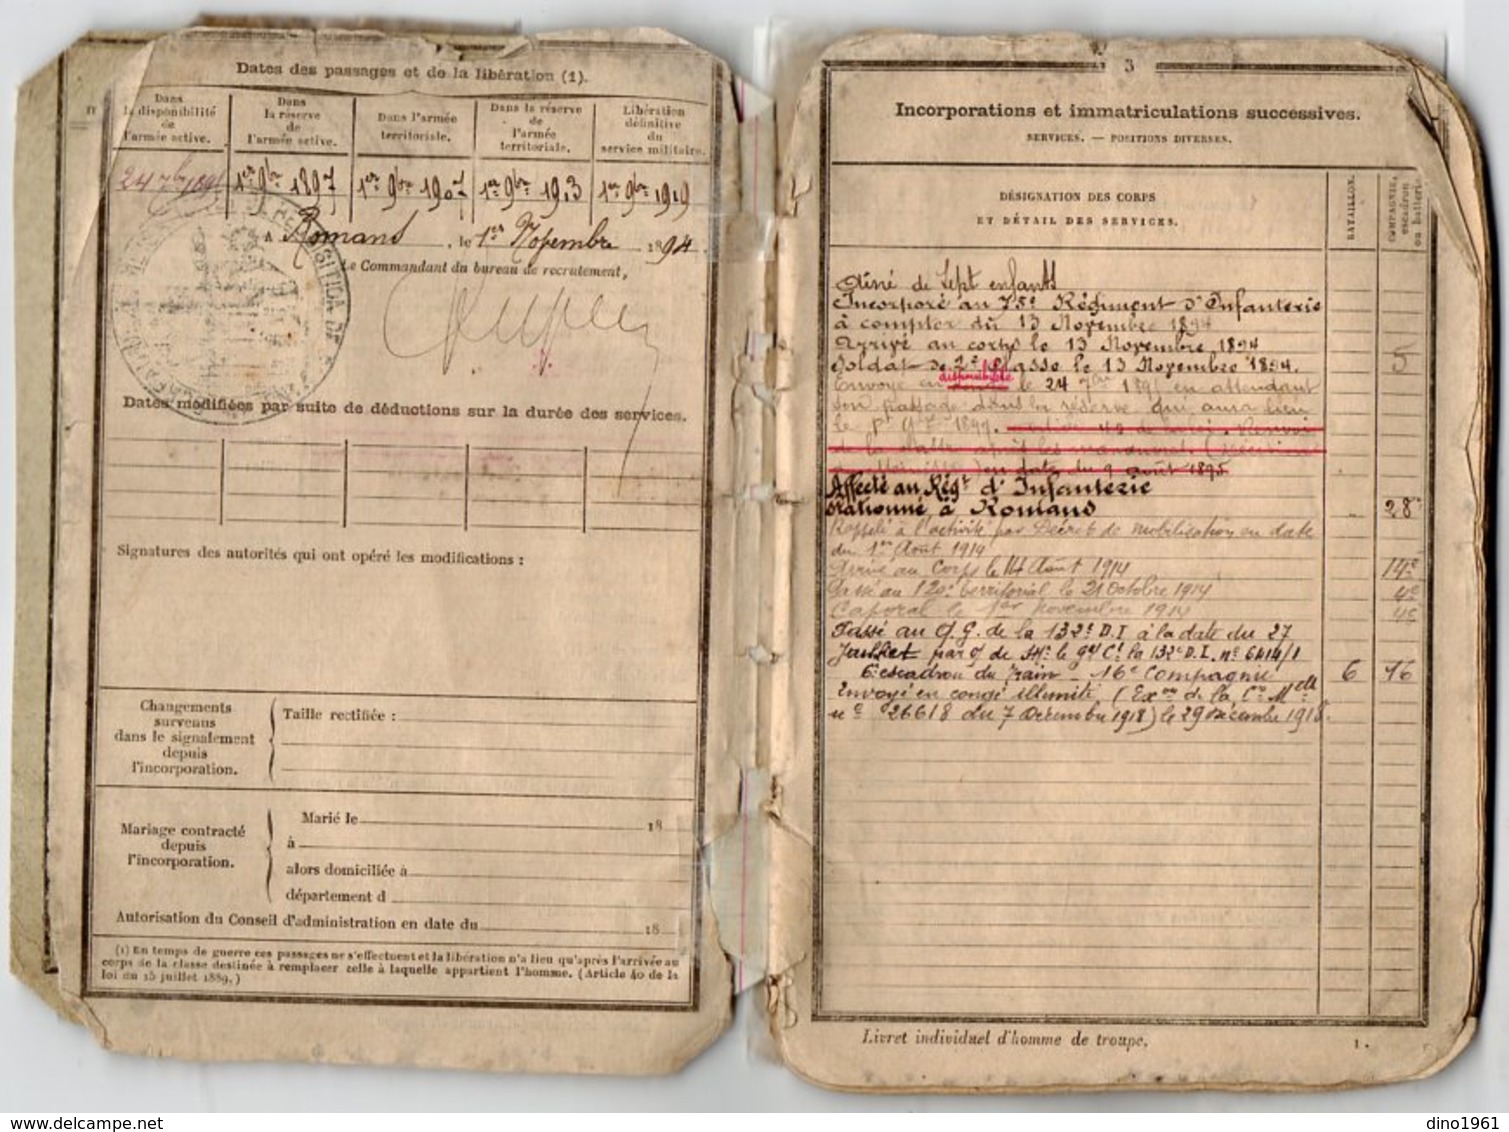 Dates des passages et de la libération (1).
Dans la disponibilité de l'armée active.
Dans la réserve de l'armée active.
Dans l'armée territoriale.
Dans la réserve de l'armée territoriale.
Libération définitive du service militaire.
24 7bre 1895 1er 9bre 1897 1er 9bre 1907 1er 9bre 1913 1er 9bre 1919
A Romans, le 1er Novembre 1894.
Le Commandant du bureau de recrutement,
Dates modifiées par suite de déductions sur la durée des services.
Signatures des autorités qui ont opéré les modifications :
Changements survenus dans le signalement depuis l'incorporation.
Taille rectifiée :
Mariage contracté depuis l'incorporation.
Marié le 18
à
alors domiciliée à
département d
Autorisation du Conseil d'administration en date du 18
(1) En temps de guerre ces passages ne s'effectuent et la libération n'a lieu qu'après l'arrivée au
corps de la classe destinée à remplacer celle à laquelle appartient l'homme. (Article 40 de la
loi du 15 juillet 1889.)
3
Incorporations et immatriculations successives.
SERVICES. — POSITIONS DIVERSES.
DÉSIGNATION DES CORPS
ET DÉTAIL DES SERVICES.
BATAILLON.
COMPAGNIE, escadron ou batterie.
Aîné de sept enfants
Incorporé au 75e Régiment d'Infanterie
à compter du 13 Novembre 1894
Arrivé au corps le 13 Novembre 1894
Soldat de 2e classe le 13 Novembre 1894. 5
disponibilité
Envoyé en le 24 7bre 1895 en attendant
son passage dans la réserve qui aura lieu
le 1er 9bre 1897.
en date du 9 août 1895
Affecté au Régt d'Infanterie
stationné à Romans 28
Rappelé à l'activité par Décret de mobilisation en date
du 1er Août 1914
Arrivé au Corps le 14 Août 1914 14e
Passé au 120e territorial le 21 Octobre 1914 4e
Caporal le 1er novembre 1914 4e
Passé au Q.G. de la 132e D.I à la date du 27
Juillet par O/ de Mr le gal Ct la 132e D.I. n° 6414/1
6e escadron du Train - 16e Compagnie 6 16
Envoyé en congé illimité (Exon de la Cre Mlle
n° 26618 du 7 Décembre 1918) le 29 Décembre 1918.
Livret individuel d'homme de troupe.
1.
dino1961